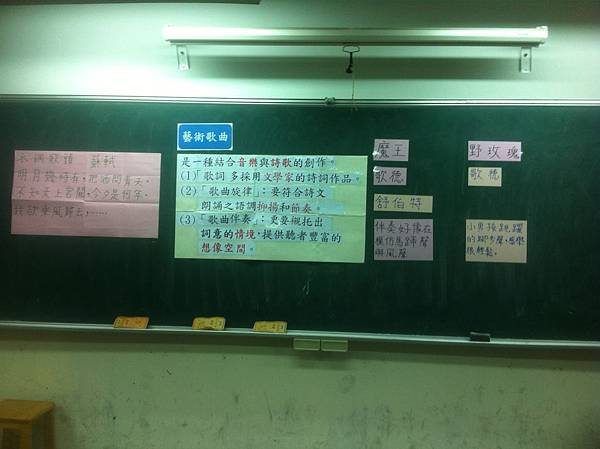 水調歌頭 蘇軾
明月幾時有，把酒問青天。
不知天上宮闕，今夕是何年。
我欲乘風歸去，……
藝術歌曲
是一種結合音樂與詩歌的創作。
(1)「歌詞」多採用文學家的詩詞作品。
(2)「歌曲旋律」：要符合詩文
朗誦之語調抑揚和節奏。
(3)「歌曲伴奏」：更要襯托出
詞意的情境，提供聽者豐富的
想像空間。
魔王
歌德
舒伯特
伴奏好像在
模仿馬蹄聲
與風聲
野玫瑰
歌德
小男孩跳躍
的腳步聲，感覺
很輕鬆，